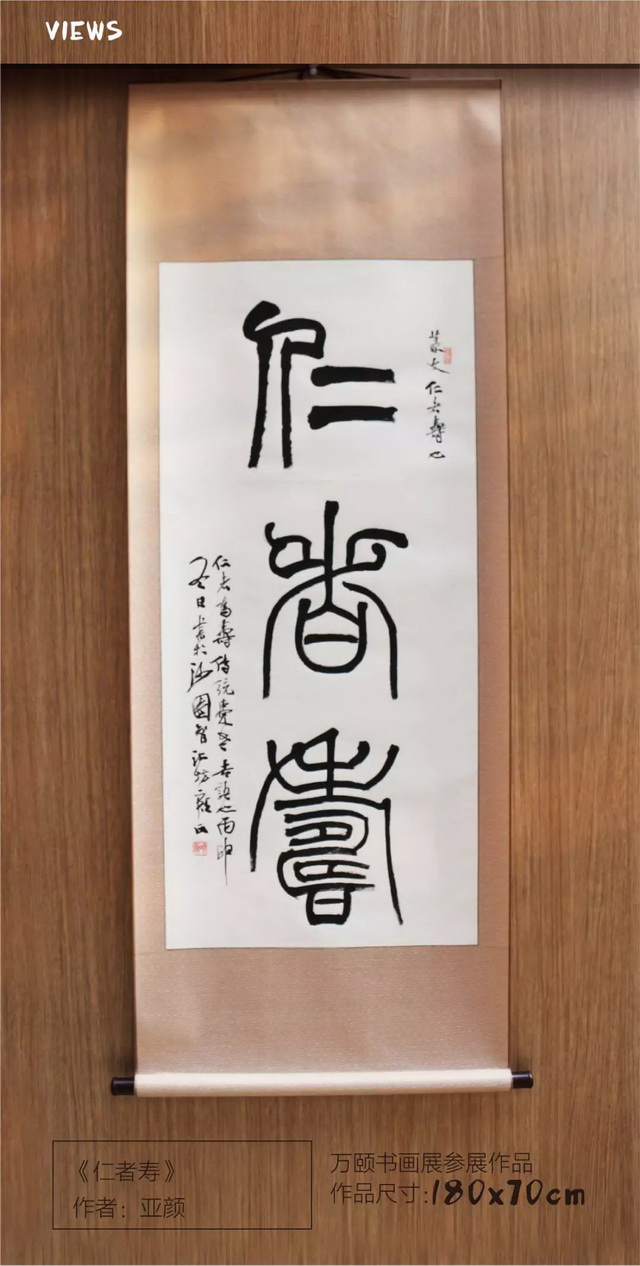 VIEWS
仁者壽
篆文仁者壽也
仁者為壽傳統養生吉語也丙申
冬日書於
《仁者寿》
作者：亚颜
万颐书画展参展作品
作品尺寸:180x70cm